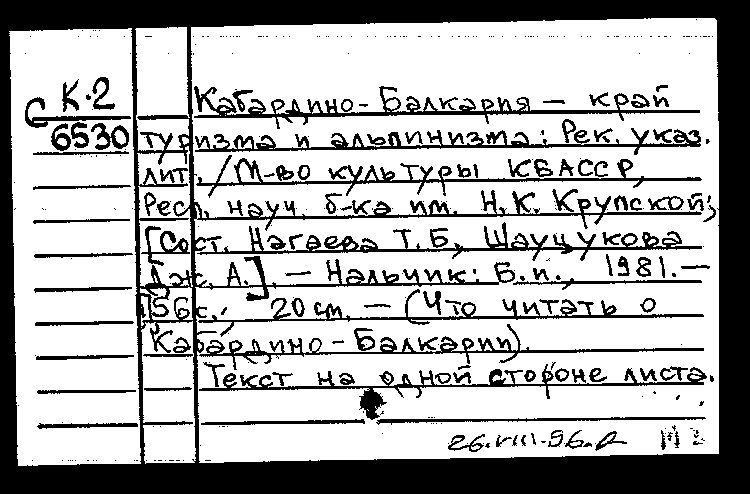 С К-2
6530
Кабардино-Балкария — край
туризма и альпинизма: Рек. указ.
лит. / М-во культуры КБАССР,
Респ. науч. б-ка им. Н. К. Крупской;
[Сост. Нагаева Т. Б., Шауцукова
Дж. А.]. — Нальчик: Б. и., 1981. —
156 с.; 20 см. — (Что читать о
Кабардино-Балкарии).
Текст на одной стороне листа.
26.VIII-96.